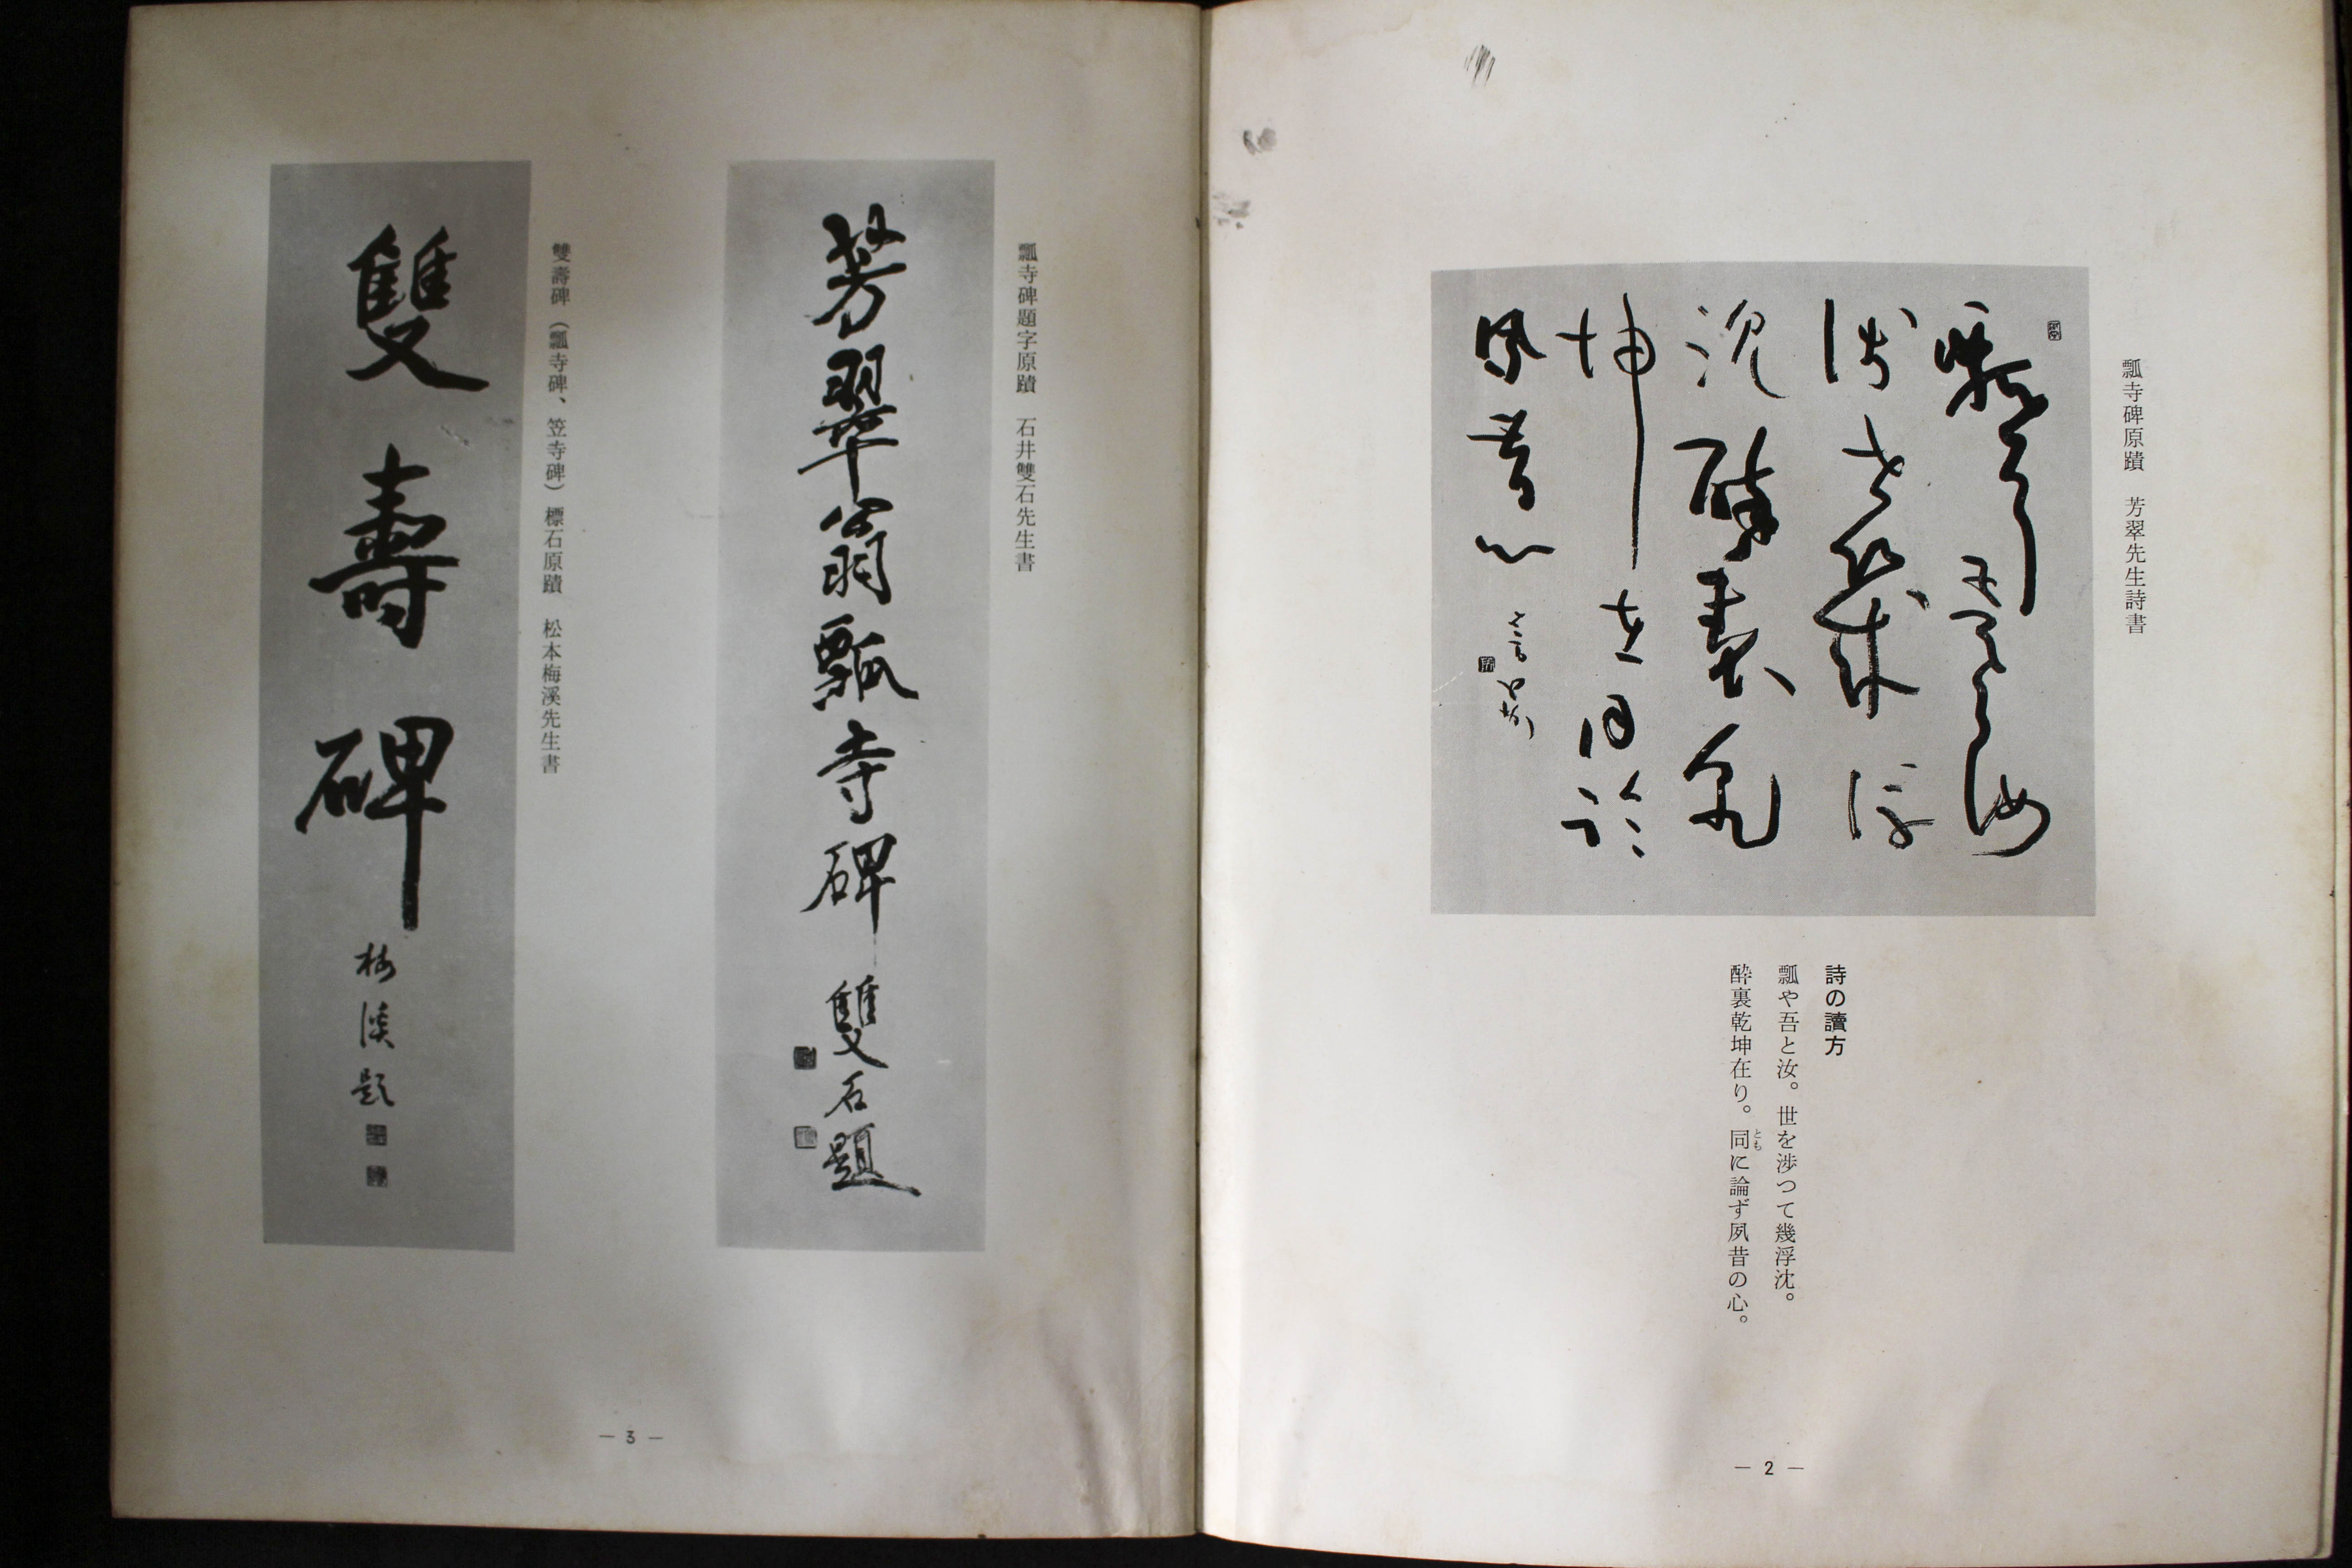 瓢寺碑原蹟　芳翠先生詩書
瓢兮吾与汝
渉世幾浮
沈酔裏乾
坤在同論
夙昔心
詩の讀方
瓢や吾と汝。世を渉つて幾浮沈。
酔裏乾坤在り。同に論ず夙昔の心。
とも
— 2 —
瓢寺碑題字原蹟　石井雙石先生書
芳翠翁瓢寺碑　雙石題
雙壽碑（瓢寺碑、笠寺碑）標石原蹟　松本梅溪先生書
雙壽碑　梅溪題
— 3 —